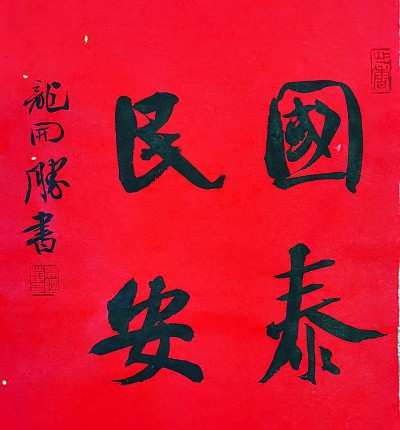 國泰
民安
龍開勝書